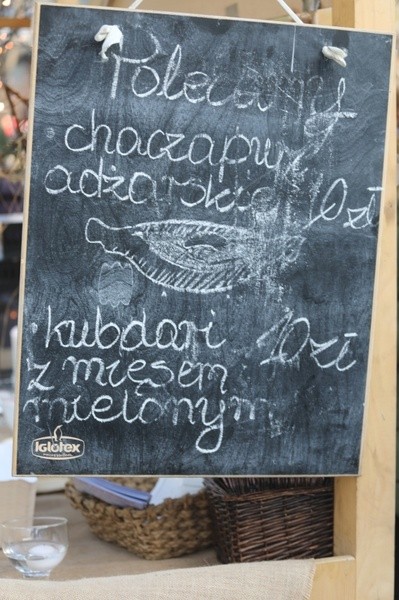 Polecamy
chaczapuri
adżarskie 10zł
kubdari 10zł
z mięsem
mielonym
Iglotex